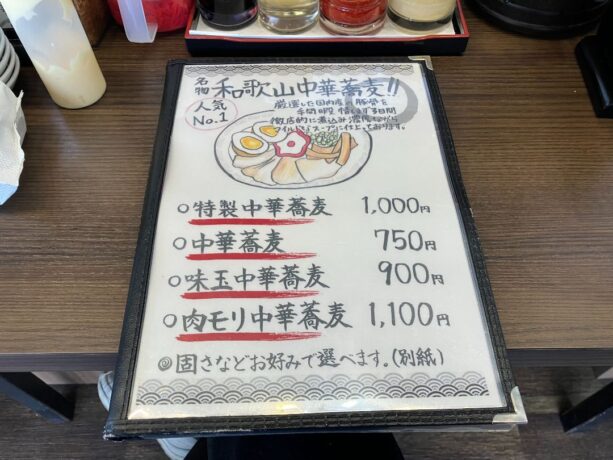 名物 和歌山中華蕎麦!!
人気 No.1
厳選した国内産の豚骨を
手間暇惜します3日間
徹底的に煮込み濃厚ながら
マイルドなスープに仕上っております。
○特製中華蕎麦 1,000円
○中華蕎麦 750円
○味玉中華蕎麦 900円
○肉モリ中華蕎麦 1,100円
◎固さなどお好みで選べます。(別紙)